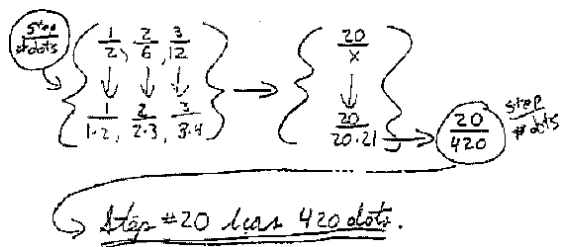 step
# dots
1/2, 2/6, 3/12
1/1·2, 2/2·3, 3/3·4
20/x
20/20·21
20/420
step
# dots
Step #20 has 420 dots.